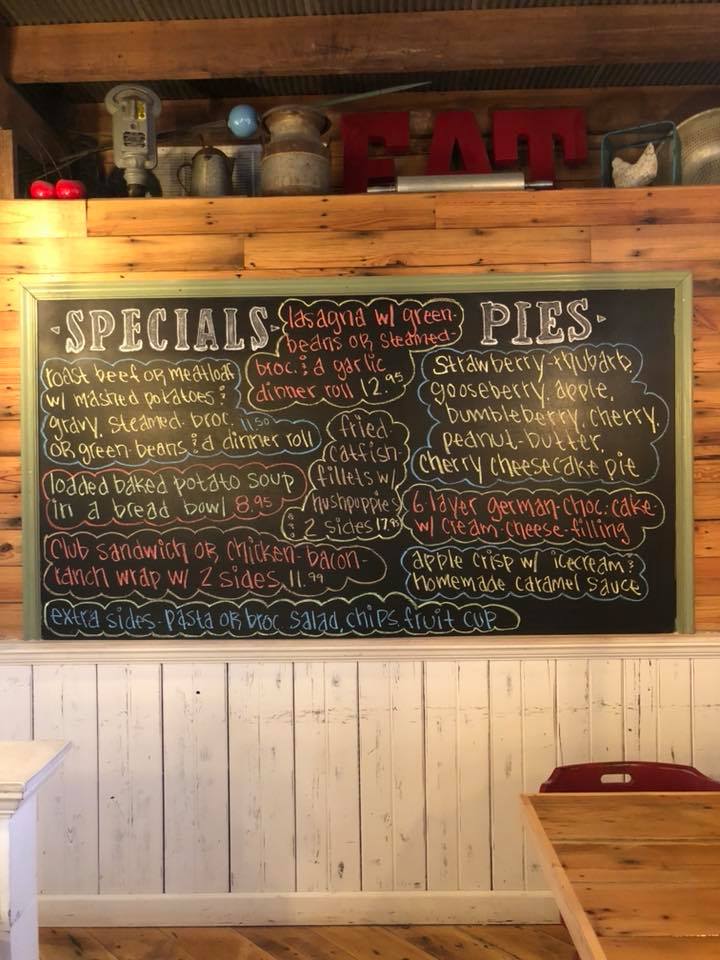 EAT
SPECIALS
roast beef OR meatloaf
w/ mashed potatoes &
gravy, steamed broc. 11.50
OR green beans & a dinner roll
loaded baked potato soup
in a bread bowl 8.95
club sandwich OR chicken-bacon-
ranch wrap w/ 2 sides 11.99
extra sides-pasta OR broc. salad, chips, fruit cup
lasagna w/ green-
beans OR steamed-
broc. & a garlic
dinner roll 12.95
fried
catfish
fillets w/
hushpuppies
& 2 sides 17.95
PIES
strawberry-rhubarb,
gooseberry, apple,
bumbleberry, cherry,
peanut-butter,
cherry cheesecake pie
6 layer german-choc. cake-
w/ cream-cheese-filling
apple crisp w/ icecream &
homemade caramel sauce